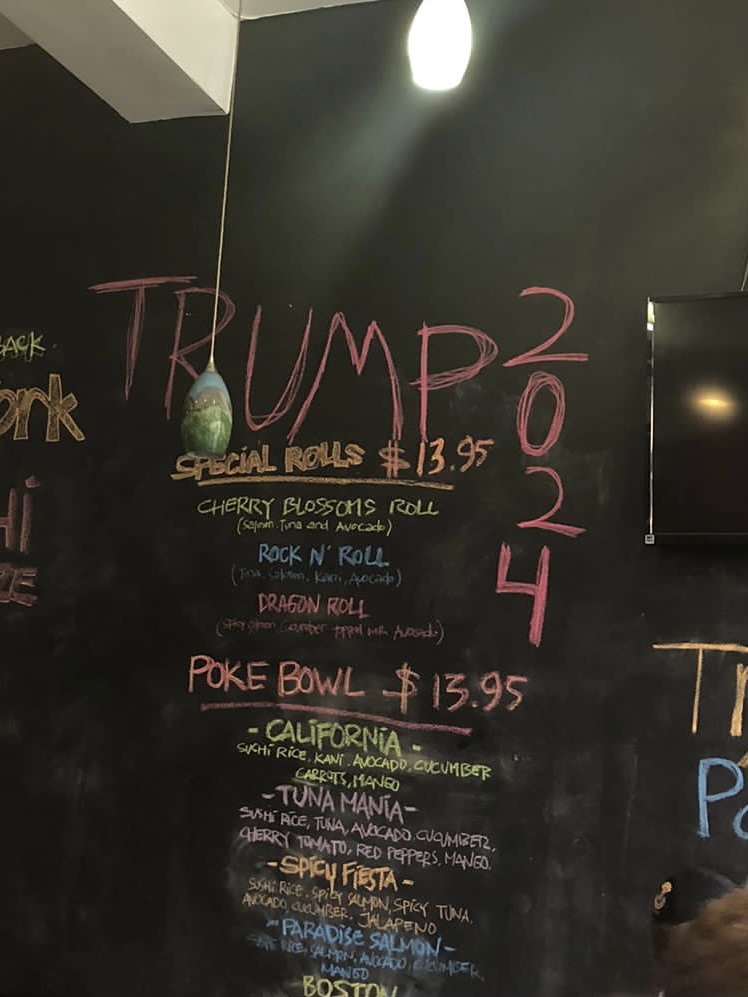 TRUMP 2024
SPECIAL ROLLS $13.95
CHERRY BLOSSOMS ROLL
(Salmon, Tuna and Avocado)
ROCK N' ROLL
(Tuna, Salmon, Kani, Avocado)
DRAGON ROLL
(Spicy Salmon, Cucumber topped with Avocado)
POKE BOWL $13.95
- CALIFORNIA -
SUSHI RICE, KANI, AVOCADO, CUCUMBER
CARROTS, MANGO
- TUNA MANIA -
SUSHI RICE, TUNA, AVOCADO, CUCUMBER,
CHERRY TOMATO, RED PEPPERS, MANGO.
- SPICY FIESTA -
SUSHI RICE, SPICY SALMON, SPICY TUNA,
AVOCADO, CUCUMBER, JALAPENO
- PARADISE SALMON -
RICE, SALMON, AVOCADO, CUCUMBER,
MANGO
BOSTON